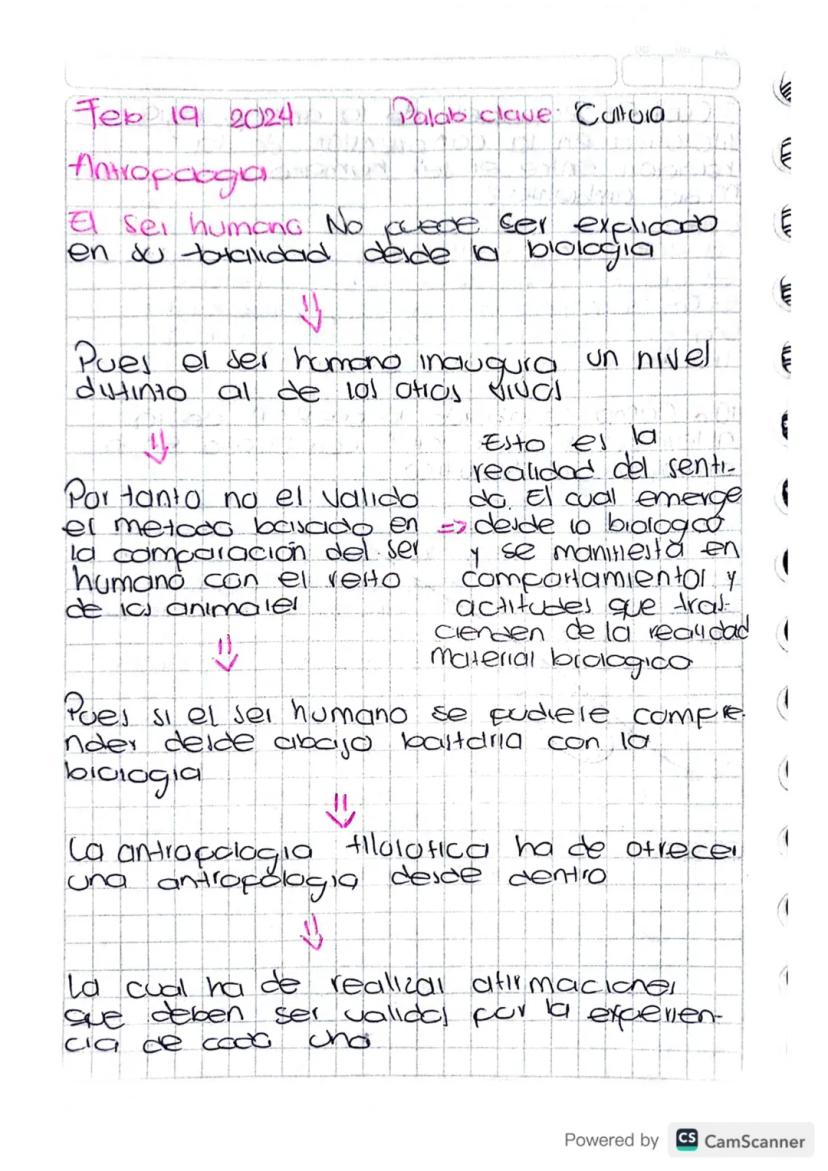 Feb 19 2024 Palab clave: Cultura
Antropologia
El ser humano No puede ser explicado
en su totalidad desde la biologia
Pues el ser humano inaugura un nivel
distinto al de los otros vivos
Por tanto no el valido
el metodo basado en
la comparación del ser
humano con el resto
de los animales
Esto es la
realidad del senti-
do. El cual emerge
desde lo biologco
y se manifiesta en
comportamientos y
actitudes que tras-
cienden de la realidad
material biologico
Pues si el ser humano se pudiese compre-
nder desde abajo bastaria con la
biologia
La antropologia filosofica ha de ofrecer
una antropologia desde dentro
La cual ha de realizar afirmaciones
que deben ser validas por la experien-
cia de cada uno
Powered by CS CamScanner